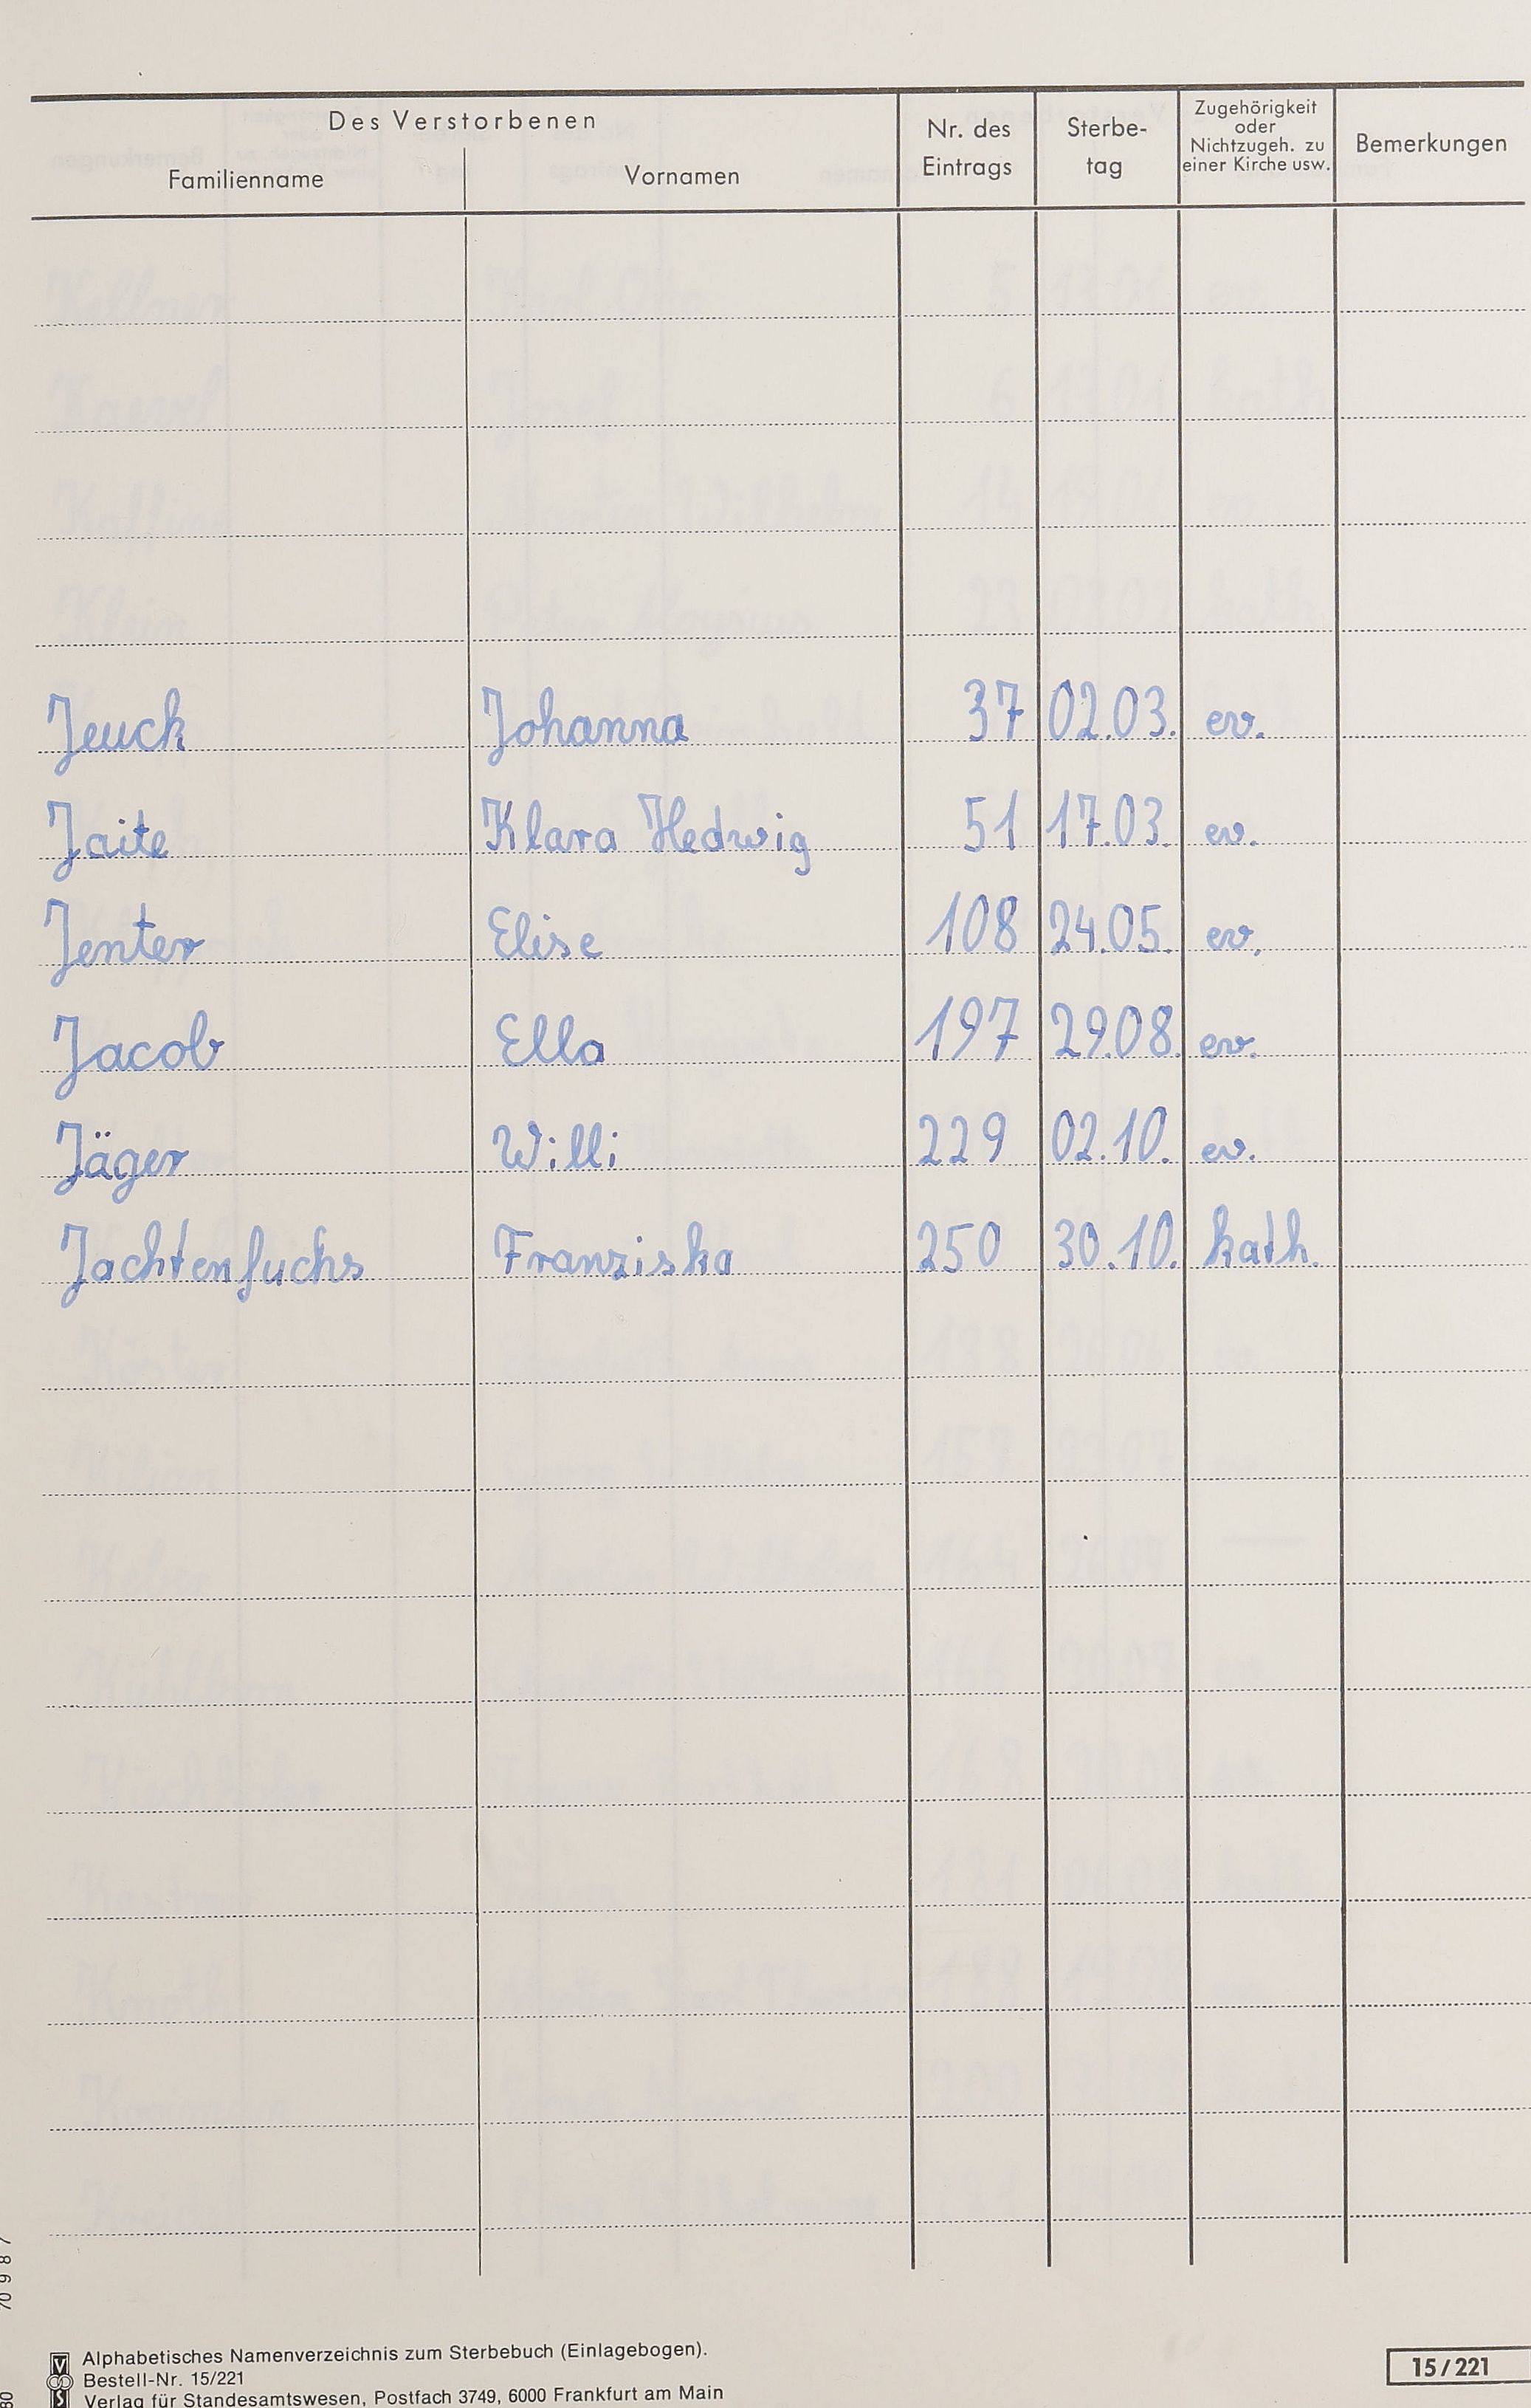 Des Verstorbenen
Familienname Vornamen Nr. des Eintrags Sterbe-tag Zugehörigkeit oder Nichtzugeh. zu einer Kirche usw. Bemerkungen
Jeuck Johanna 37 02.03. ev.
Jaite Klara Hedwig 51 17.03. ev.
Jenter Elise 108 24.05. ev.
Jacob Ella 197 29.08. ev.
Jäger Willi 229 02.10. ev.
Jachtenfuchs Franziska 250 30.10. kath.
Alphabetisches Namenverzeichnis zum Sterbebuch (Einlagebogen).
Bestell-Nr. 15/221
Verlag für Standesamtswesen, Postfach 3749, 6000 Frankfurt am Main
15/221